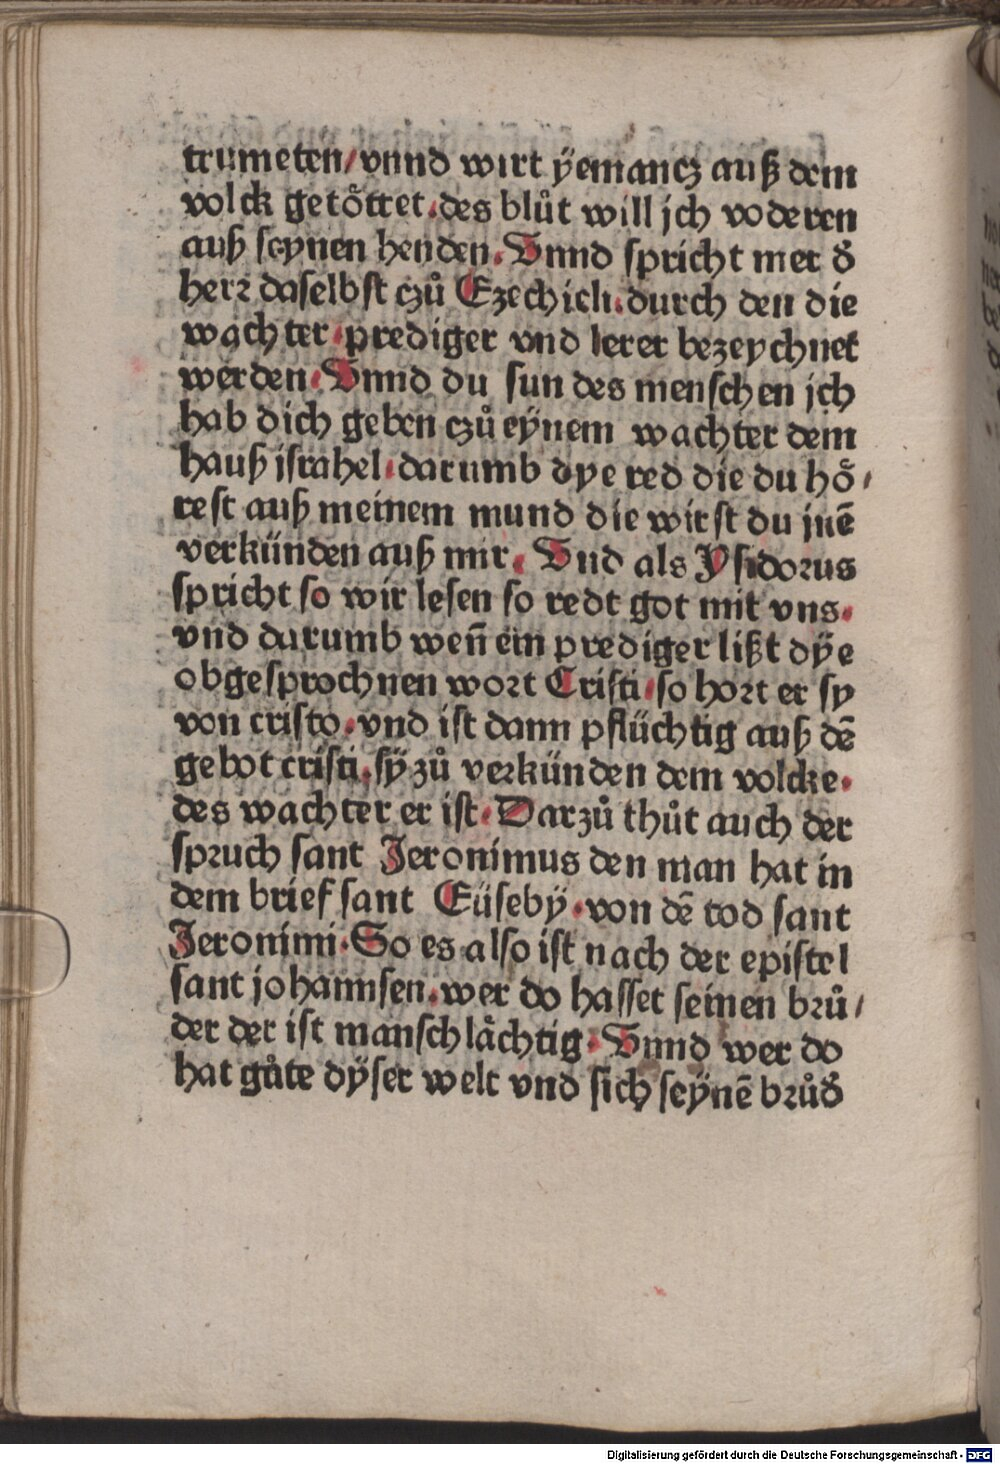 trumeten/vnnd wirt ÿemancz auß dem
volck getöttet.des blůt will jch voderen
auß seynen henden.Vnnd spricht mer d̕
herr daselbst czů Ezechieli.durch den die
wachter.prediger vnd lerer bezeychnet
werden.Vnnd du sun des menschen jch
hab dich geben czů eÿnem wachter dem
hauß israhel.darumb dye red die du hö/
rest auß meinem mund die wirst du jnē
verkünden auß mir. Vnd als Ysidorus
spricht so wir lesen so redt got mit vns.
vnd darumb weñ ein prediger lißt dÿe
obgesprochnen wort Cristi.so hort er sy
von cristo.vnd ist dann pflüchtig auß dē
gebot cristi.sÿ zů verkünden dem volcke.
des wachter er ist.Darzů thůt auch der
spruch sant Jeronimus den man hat in
dem brief sant Eüsebÿ.von dē tod sant
Jeronimi.So es also ist nach der epistel
sant johannsen.wer do hasset seinen brů/
der der ist manschlächtig.Vnnd wer do
hat gůte dÿser welt vnd sich seÿnē brůd̕
Digitalisierung gefördert durch die Deutsche Forschungsgemeinschaft - DFG